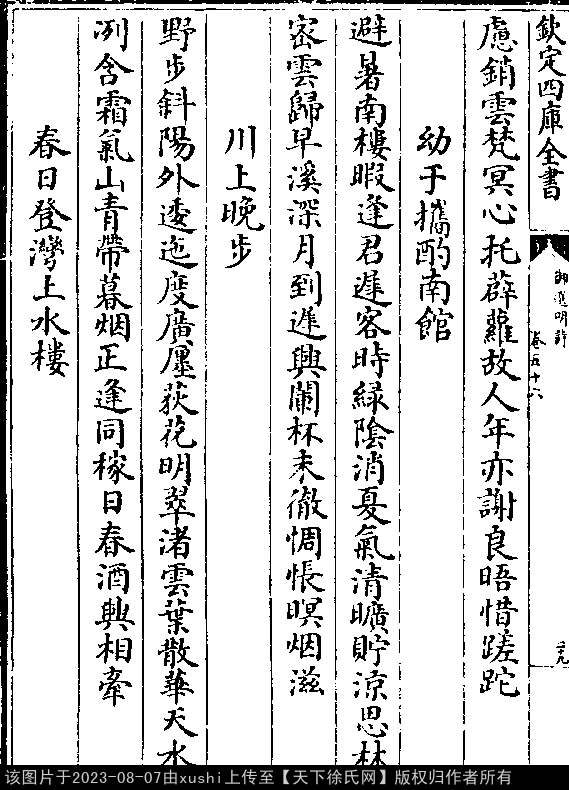 欽定四庫全書
御選明詩
卷五十六
三九
慮銷雲梵冥心托薜蘿故人年亦謝良晤惜蹉跎
幼于攜酌南館
避暑南樓暇逢君遲客時緑陰消夏氣清曠貯涼思林
密雲歸早溪深月到遲興闌杯未徹惆悵暝烟滋
川上晚步
野步斜陽外逶迤度廣廛荻花明翠渚雲葉散華天水
冽含霜氣山青帶暮烟正逢同稼日春酒興相牽
春日登灣上水樓
该图片于2023-08-07由xushi上传至【天下徐氏网】版权归作者所有